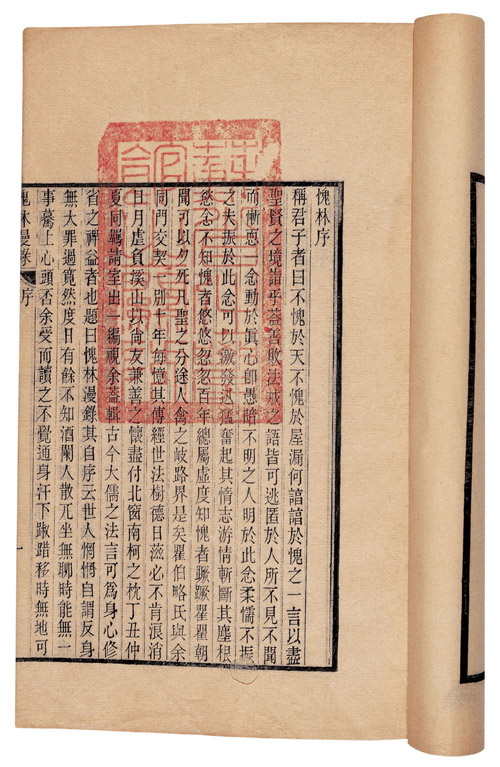 愧林序
稱君子者曰不愧於天不愧於屋漏何諳諳於愧之一言以盡
聖賢之境詣乎蓋善敗法戒之語皆可逃匿於人所不見不聞
而慚恧一念動於眞心卽愚暗不明之人明於此念柔懦不振
之夫振於此念可以激發迅猛奮起其惰志游情斬斷其塵根
慾念不知愧者悠悠忽忽百年總屬虛度知愧者蹶蹶瞿瞿朝
聞可以夕死凡聖之分途人禽之岐路界是矣瞿伯略氏與余
同門交契一別十年每憶其傳經世法樹德日滋必不肯浪消
日月虛負溪山以尙友兼善之懷盡付北窗南柯之枕丁丑仲
夏同羈請室出一編視余蓋輯古今大儒之法言可爲身心修
省之裨益者也題曰愧林漫錄其自序云世人惛惛自謂反身
無大罪過竟然度日有餘不知酒闌人散兀坐無聊時能無一
事驀上心頭否余受而讀之不覺通身汗下踧踖移時無地可
愧林漫錄
序
一